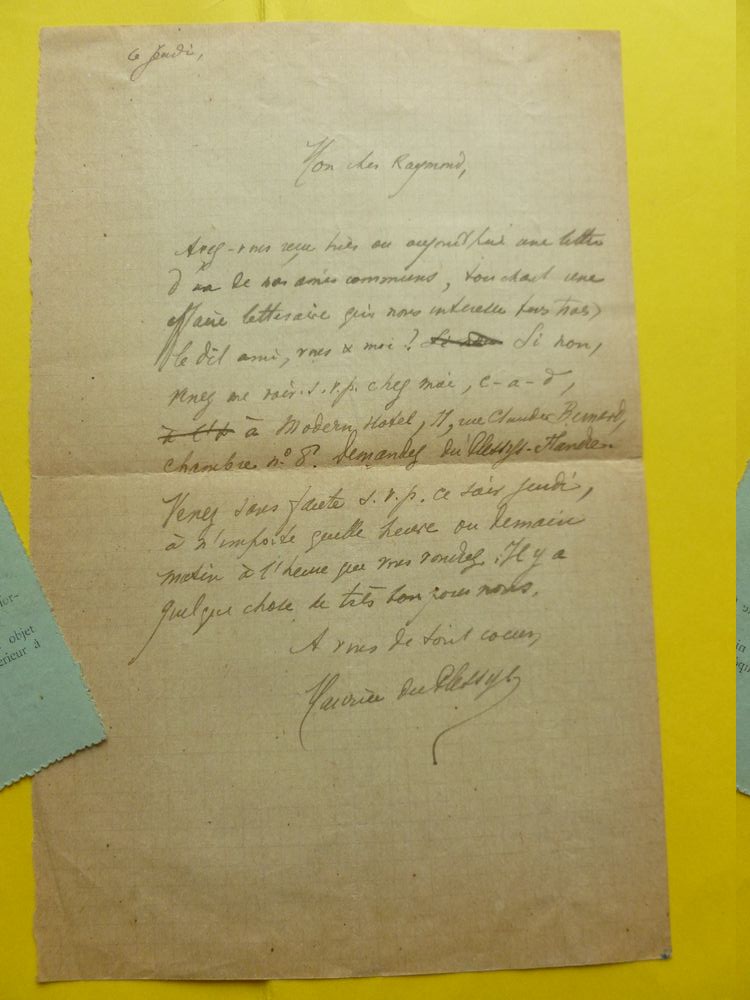 ce Jeudi,
Mon cher Raymond,
Avez-vous reçu hier ou aujourd'hui une lettre
d'un de nos amis communs, touchant une
affaire littéraire qui nous intéresse tous trois,
le dit ami, vous & moi ? Si non,
venez me voir s.v.p. chez moi, c-a-d,
à Modern Hotel, 11, rue Claude Bernard,
chambre n° 8. Demandez du Plessys-Flandre
Venez sans faute s.v.p. ce soir jeudi,
à n'importe quelle heure ou demain
matin à l'heure que vous voudrez. Il y a
quelque chose de très bon pour nous.
A vous de tout coeur,
Maurice du Plessys
or-
objet
érieur à